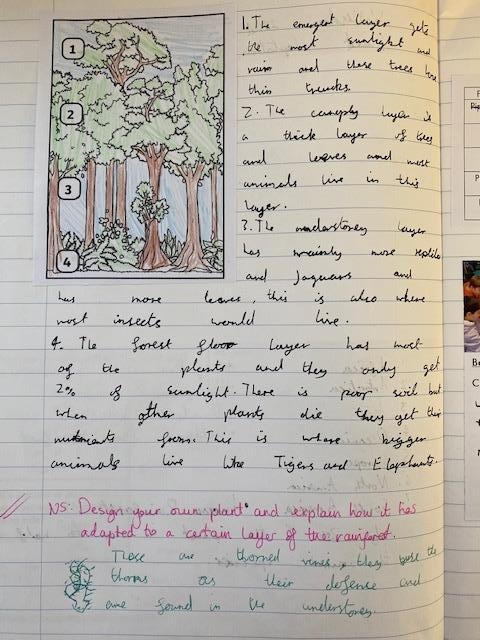 1
2
3
4
1. The emergent layer gets
the most sunlight and
rain and these trees have
thin truncks.
2. The canopby layer is
a thick layer of trees
and leaves and most
animals live in this
layer.
3. The understoney layer
has mainly more reptiles
and Jaguars and
has more leaves, this is also where
most insects would live.
4. The forest floor layer has most
of the plants and they only get
2% of sunlight. There is poor soil but
when other plants die they get their
nutrients from. This is where bigger
animals live like Tigers and Elaphants.
NS: Design your own plant and explain how it has
adapted to a certain layer of the rainforest.
These are thorned vines, they use the
thorns as their defense and
are found in the understoney.